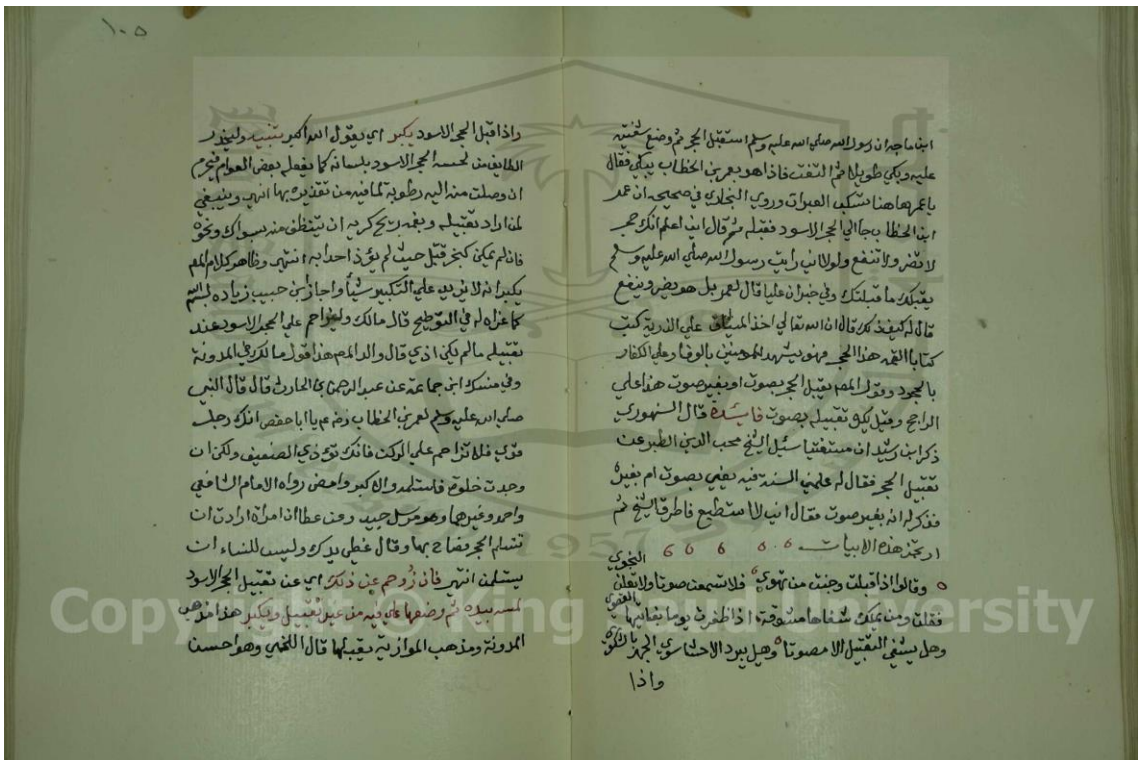 ابن ماجه ان رسول الله صلي الله عليه وسلم استقبل الحجر ثم وضع شفتيه
عليه وبكي طويلا ثم التفت فاذا هو بعمر بن الخطاب يبكي فقال
يا عمر هاهنا تسكب العبرات وروي البخاري في صحيحه ان عمر
ابن الخطاب جا الي الحجر الاسود فقبله ثم قال اني اعلم انك حجر
لا تضر ولا تنفع ولولا اني رايت رسول الله صلي الله عليه وسلم
يقبلك ما قبلتك وفي خبر ان عليا قال لعمر بل هو يضر وينفع
قال له كيف ذلك قال ان الله تعالي اخذ الميثاق علي الذرية كتب
كتابا القمه هذا الحجر فهو يشهد للمومنين بالوفا وعلي الكفار
بالجحود وقول المص يقبل الحجر بصوت او بغير صوت هذا علي
الراجح وقيل يكره تقبيله بصوت فائدة قال السنهوري
ذكر ابن رشيد ان مستفتيا سئيل الشيخ محب الدين الطبري عن
تقبيل الحجر فقال له علمني السنة فيه يعني بصوت ام بغيره
فذكر له انه بغير صوت فقال اني لا استطيع فاطرق الشيخ ثم
ارتجز هذه الابيات
وقالوا اذا قبلت وجنت من تهوي فلا تسمعن صوتا ولا تعلن النجوي
فقلت ومن يملك شفاها مشوقة اذا ظفرت يوما بغايتها القصوي
وهل يشفي التقبيل الا مصوتا وهل يبرد الاحشا سوي الجهر بالشكوي
واذا
١٠٥
واذا قبل الحجر الاسود يكبر اي يقول الله اكبر تنبيه وليحذر
الطايف من لحسه الحجر الاسود بلسانه كما يفعله بعض العوام فيحرم
ان وصلت منه اليه رطوبة لما فيه من تقذيره بها انتهي وينبغي
لمن اراد تقبيله وبفمه ريح كريه ان يتنظف منه بسواك ونحوه
فان لم يمكن كبخر قبل حيث لم يؤذ احدا به انتهي وظاهر كلام المص
يكبر انه لا يزيد علي التكبير شيأ واجاز ابن حبيب زيادة بسم الله
كما عزاه له في التوضيح قال مالك وليزاحم علي الحجر الاسود عند
تقبيله ما لم يكن اذي قال والد المص هذا قول مالك في المدونة
وفي منسك ابن جماعة عن عبد الرحمن بن الحارث قال قال النبي
صلي الله عليه وسلم لعمر بن الخطاب رضي عم يا ابا حفص انك رجل
قوي فلا تزاحم علي الركن فانك تؤذي الضعيف ولكن ان
وجدت خلوة فاستلمه والا كبر وامض رواه الامام الشافعي
واحمد وغيرهما وهو مرسل جيد وعن عطا ان امراة ارادت ان
تستلم الحجر فصاح بها وقال غطي يدك وليس للنساء ان
يستلمن انتهي فان زوحم عن ذلك اي عن تقبيل الحجر الاسود
لمسه بيده ثم وضعها علي فيه من غير تقبيل ويكبر هذا مذهب
المدونة ومذهب الموازية يقبلها قال اللخمي وهو احسن
Copyright © King Saud University
1957